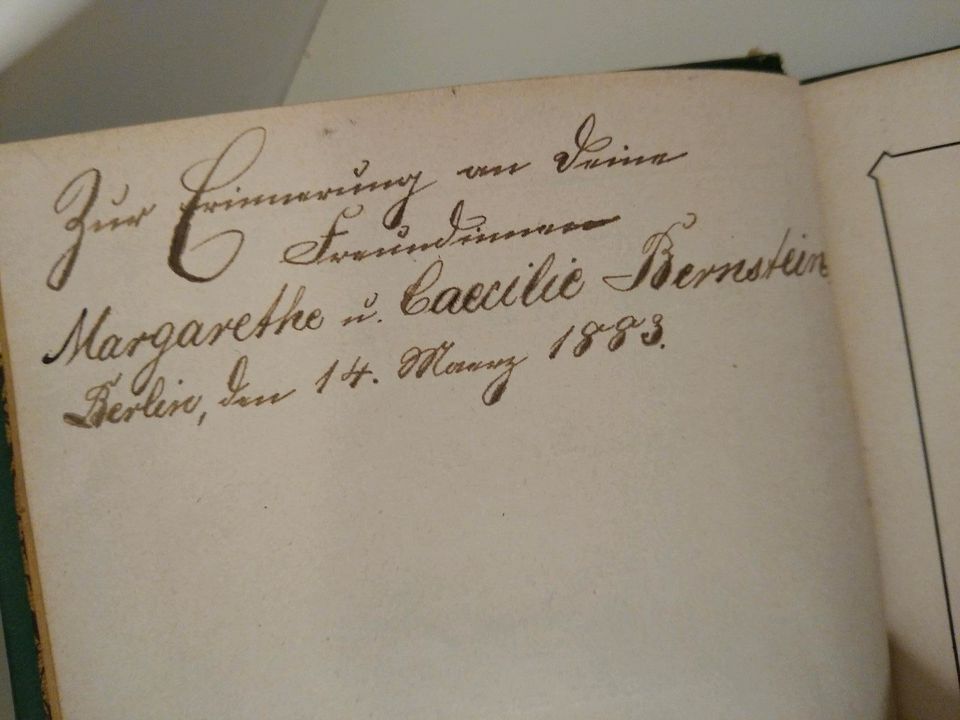 Zur Erinnerung an Deine
Freundinnen
Margarethe u. Caecilie Bernstein
Berlin, den 14. Maerz 1883.